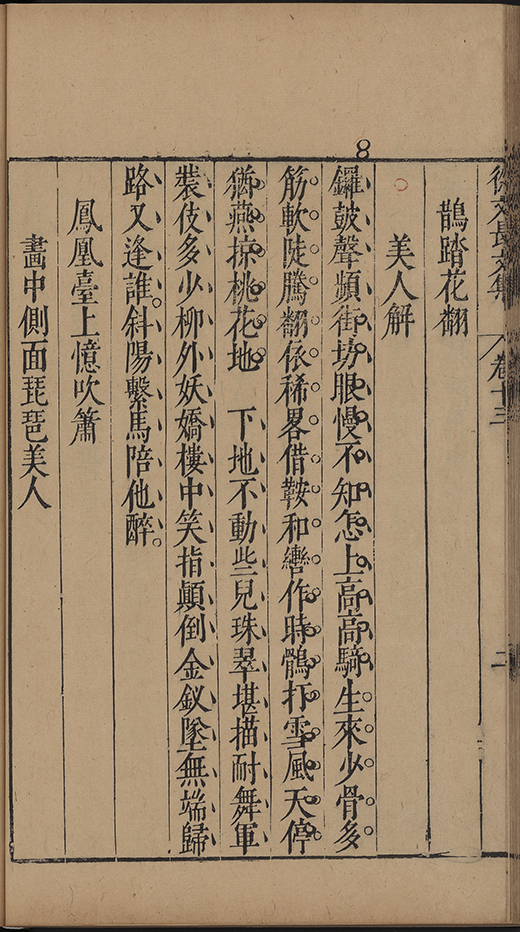 8
徐文長文集 卷十三 二
鵲踏花翻
美人解
鑼鼓聲頻街坊眼慢不知怎上高高騎生來少骨多
筋軟陡騰翻依稀畧借鞍和轡作時鶻打雪風天停
猶燕掠桃花地　下地不動些兒珠翠堪描耐舞軍
裝伎多少柳外妖嬌樓中笑指顛倒金釵墜無端歸
路又逢誰。斜陽繫馬陪他醉。
鳳凰臺上憶吹簫
畫中側面琵琶美人